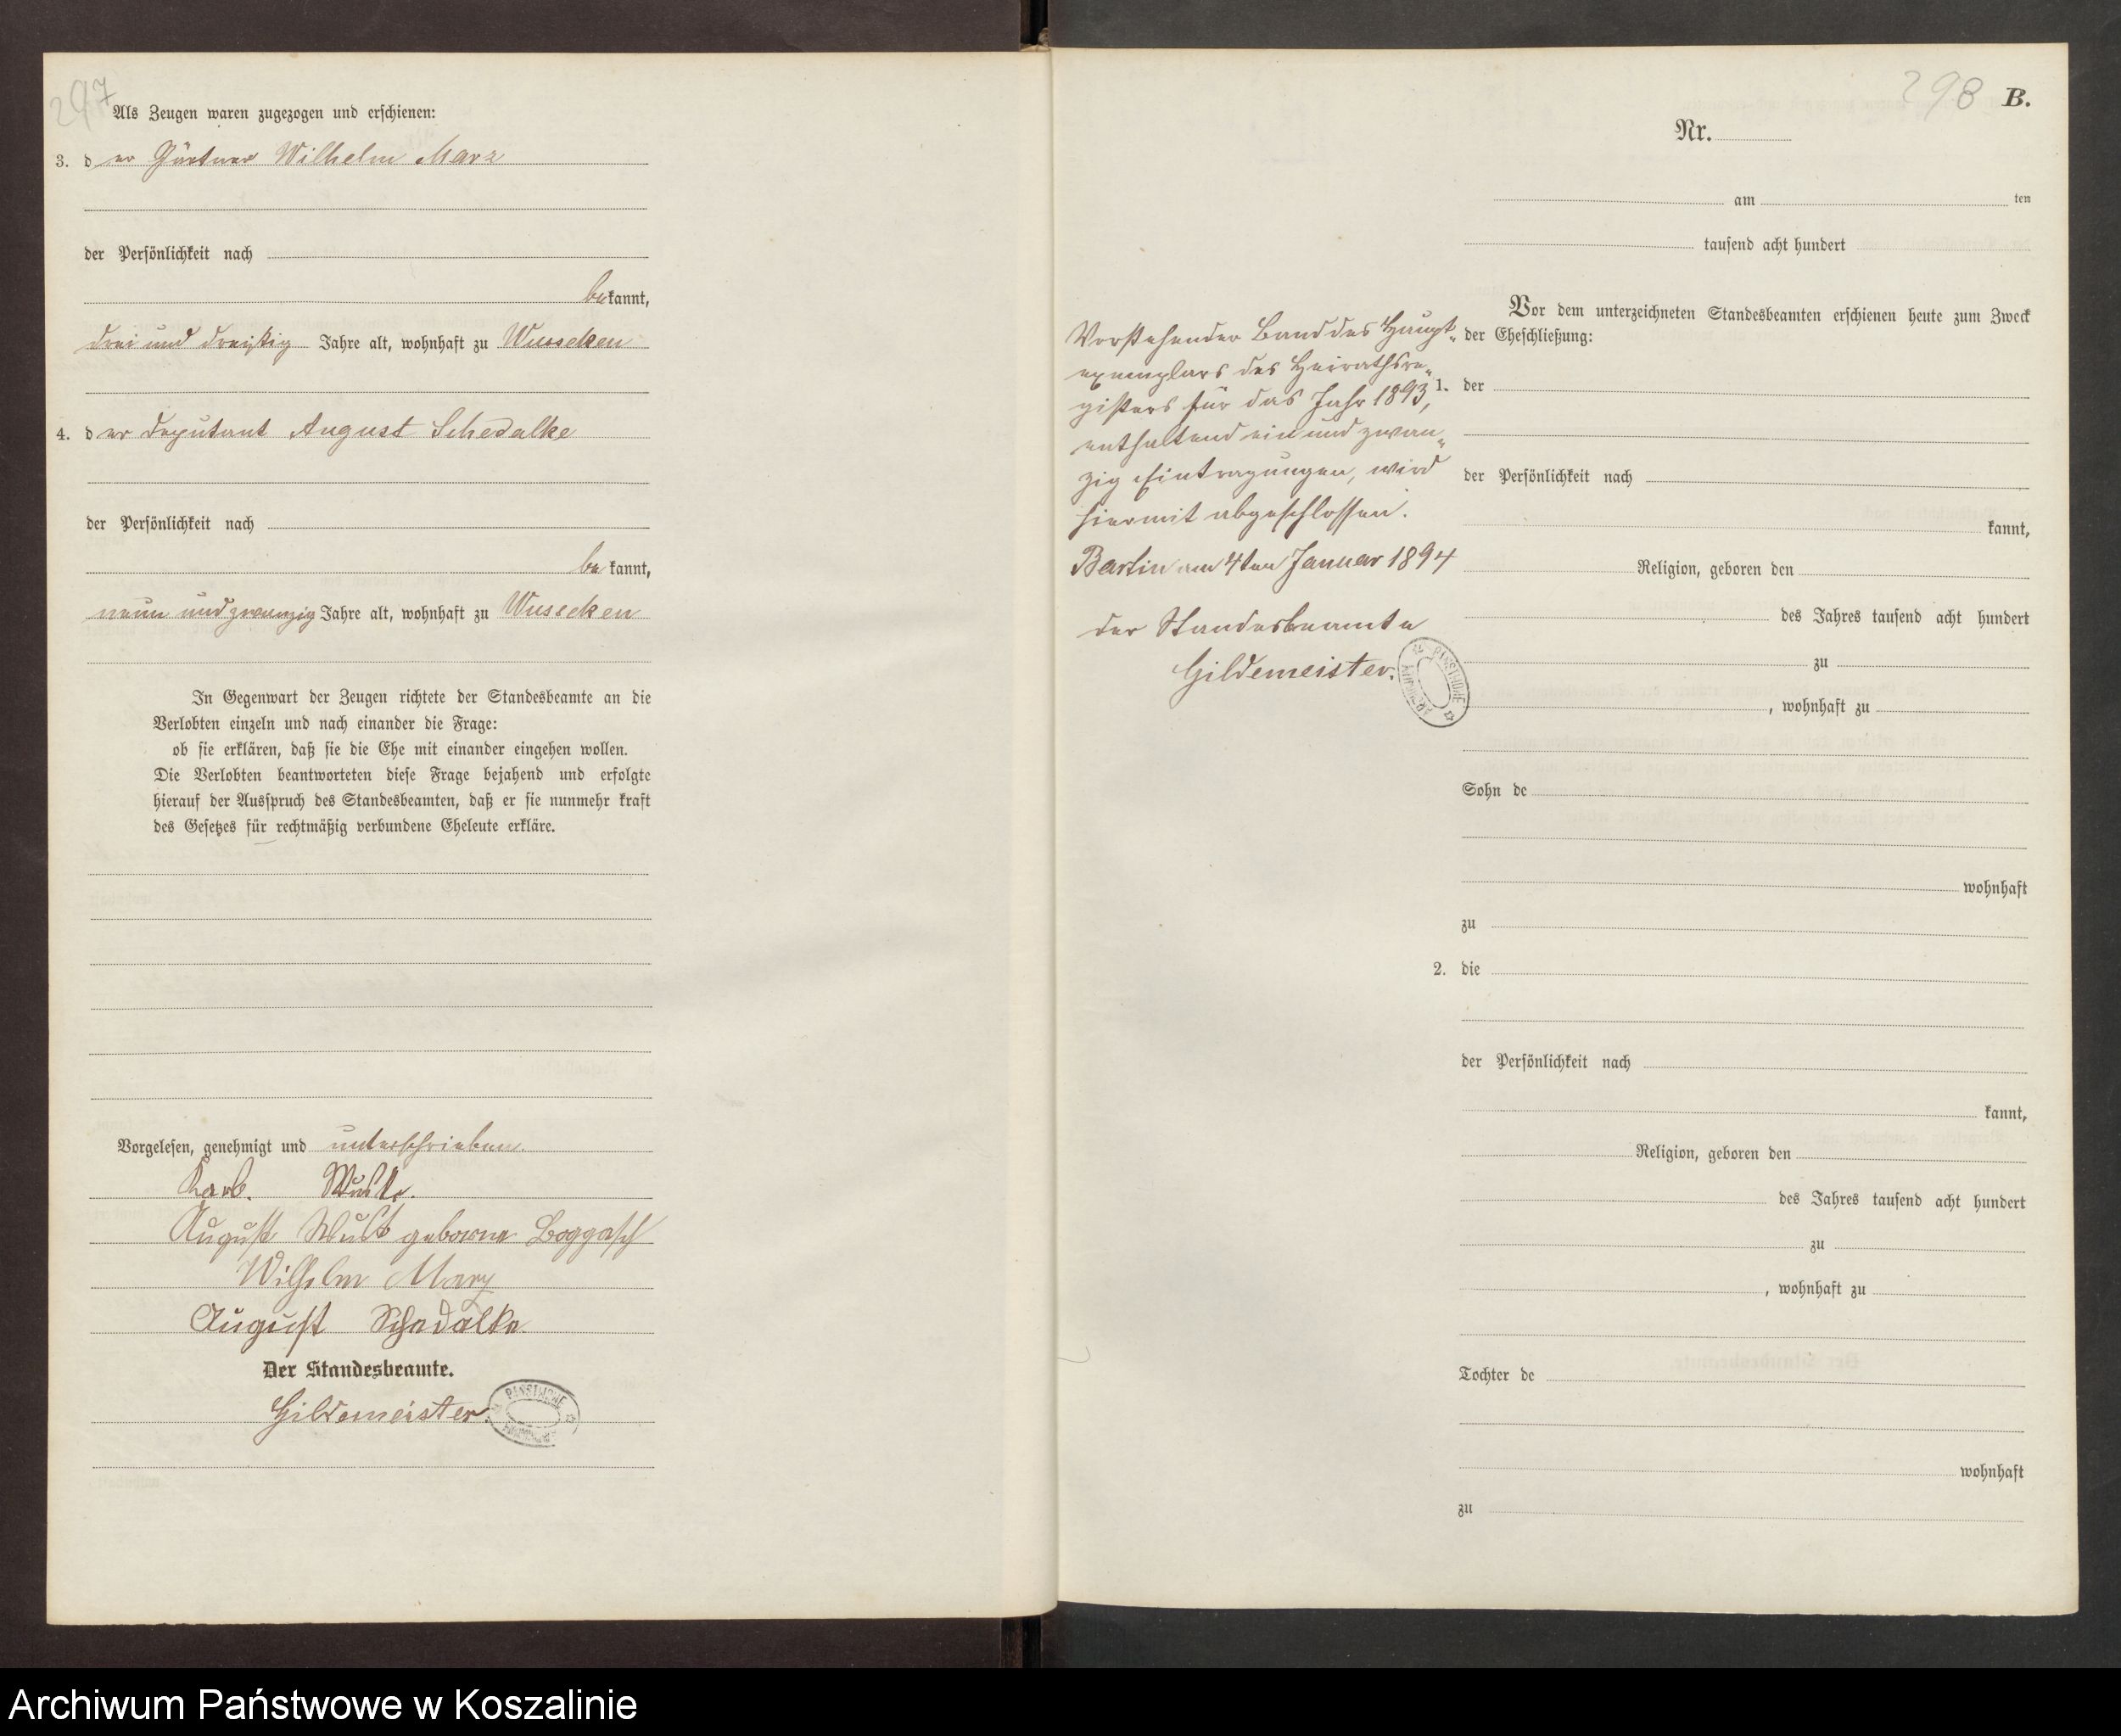 297
Als Zeugen waren zugezogen und erschienen:
3. der Gärtner Wilhelm Marz
der Persönlichkeit nach
bekannt,
drei und dreißig Jahre alt, wohnhaft zu Wussecken
4. der Deputant August Schedalke
der Persönlichkeit nach
bekannt,
neun und zwanzig Jahre alt, wohnhaft zu Wussecken
In Gegenwart der Zeugen richtete der Standesbeamte an die
Verlobten einzeln und nach einander die Frage:
ob sie erklären, daß sie die Ehe mit einander eingehen wollen.
Die Verlobten beantworteten diese Frage bejahend und erfolgte
hierauf der Ausspruch des Standesbeamten, daß er sie nunmehr kraft
des Gesetzes für rechtmäßig verbundene Eheleute erkläre.
Vorgelesen, genehmigt und unterschrieben.
August Wust geborne Boggasch
Wilhelm Marz
August Schedalke
Der Standesbeamte.
Gildemeister
PAŃSTWOWE ARCHIWUM
298 B.
Nr.
am ten
tausend acht hundert
Vor dem unterzeichneten Standesbeamten erschienen heute zum Zweck
der Eheschließung:
1. der
der Persönlichkeit nach
kannt,
Religion, geboren den
des Jahres tausend acht hundert
zu
, wohnhaft zu
Sohn de
wohnhaft
zu
2. die
der Persönlichkeit nach
kannt,
Religion, geboren den
des Jahres tausend acht hundert
zu
, wohnhaft zu
Tochter de
wohnhaft
zu
Vorstehender Band des Haupt-
exemplars des Heirathsre-
gisters für das Jahr 1893,
enthaltend ein und zwan-
zig Eintragungen, wird
hiermit abgeschlossen.
Bartin am 4ten Januar 1894
der Standesbeamte
Gildemeister.
PAŃSTWOWE ARCHIWUM
Archiwum Państwowe w Koszalinie